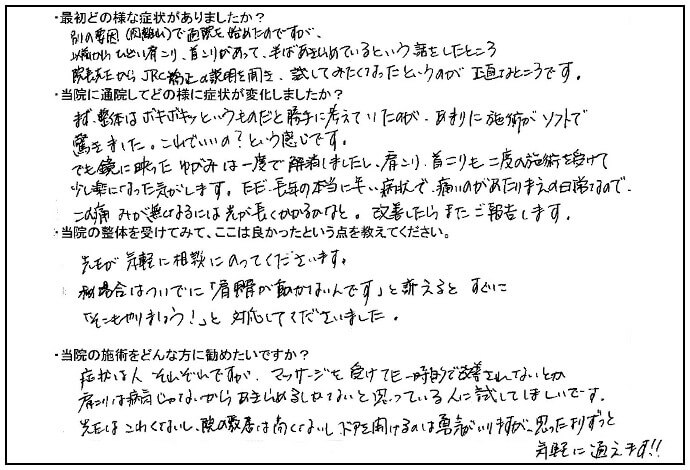 ・最初どの様な症状がありましたか?
別の要因(肉離れ)で通院を始めたのですが、
以前からひどい肩こり、首こりがあって、半ばあきらめているという話をしたところ
院長先生からJRC矯正の説明を聞き、試してみたくなったというのが正直なところです。
・当院に通院してどの様に症状が変化しましたか?
まず、整体はボキボキッというものだと勝手に考えていたのが、あまりに施術がソフトで
驚きました。これでいいの?という感じです。
でも鏡に映ったゆがみは一度で解消しましたし、肩こり、首こりも二度の施術を受けて
少し楽になった気がします。ただ長年の本当に辛い症状で、痛いのがあたりまえの日常なので、
この痛みが無くなるには先が長くかかるかなと。改善したらまたご報告します。
・当院の整体を受けてみて、ここは良かったという点を教えてください。
先生が気軽に相談にのってくださいます。
私の場合はついでに「肩が動かないんです」と訴えるとすぐに
「そこもやりましょう!」と対応してくださいました。
・当院の施術をどんな方に勧めたいですか?
症状は人それぞれですが、マッサージを受けても一時的で改善されてないとか
肩こりは病気じゃないからあきらめるしかないと思っている人に試してほしいです。
先生はこわくないし、院の敷居は高くないし、ドアを開けるのは勇気がいりますが、思ったよりずっと
気軽に通えます!!